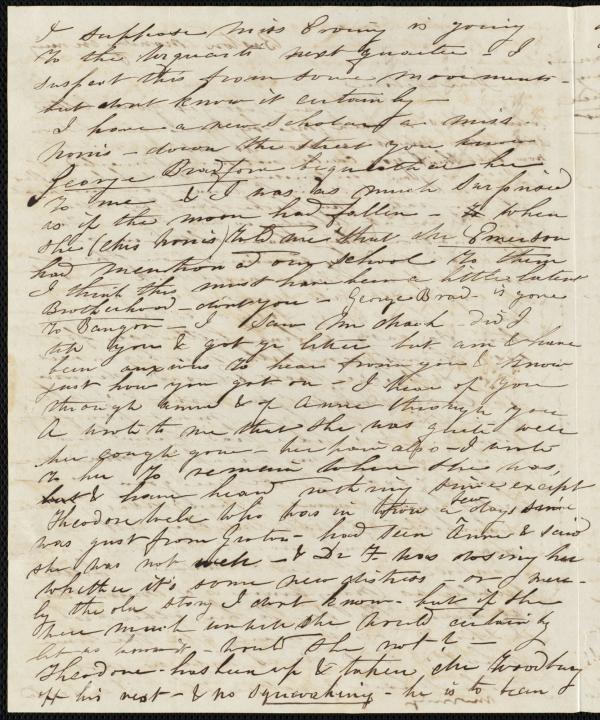 I suppose Miss is going
to the next quarter - I
suspect this from some movements -
but dont know it certainly -
I have a new Scholar a Miss
Norris - down the street you know
George Bradford bequeathed her
to me - & I was as much surprised
as if the moon had fallen - when
she (this Norris) told me that Mr Emerson
had mentioned our school to them
I think this must have been a little latent
Brotherhood - dont you - George Brad- is gone
to Bangor - I saw Mr did I
tell you & got yr letter but am & have
been anxious to hear from you & know
just how you got on - I hear of you
through Anne & of Anne through you
A wrote to me that she was quite well
her cough gone - her pain also - I wrote
to her to remain where she was,
& have heard nothing since except
Theodore who was in town a few days since
was just from Groton - had seen Anne & said
she was not well - & Dr F was dosing her
whether it's some new distress - or mere-
ly the old story I dont know - but if she
were much unwell she would certainly
let us know it - would she not? -
Theodore has been up & taken Mr Woodbury
off his nest - & no squeaking - he is to board